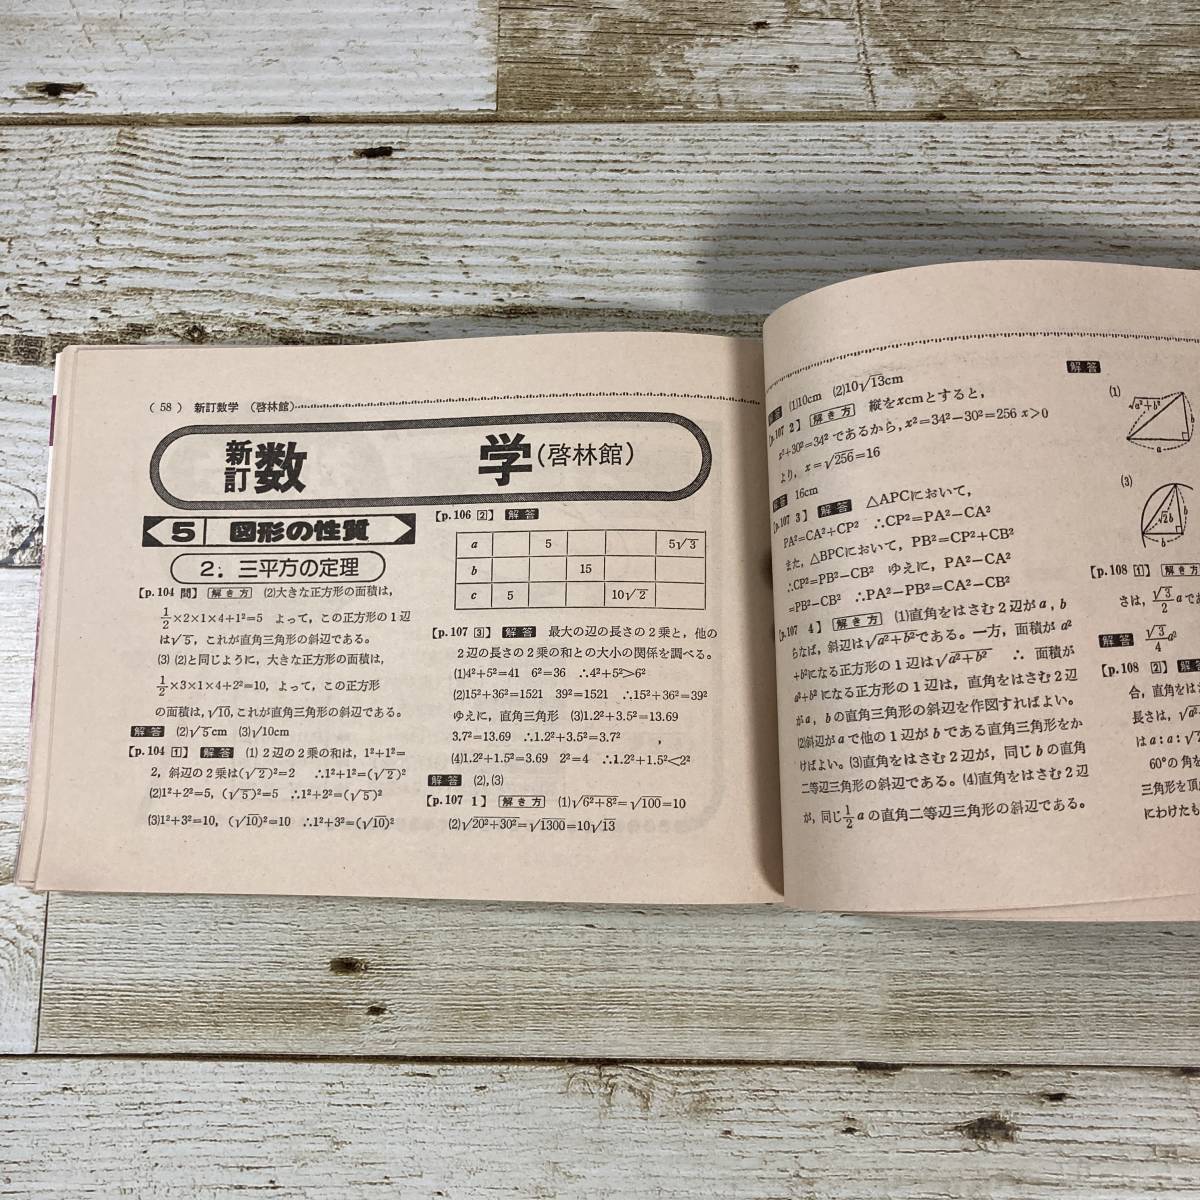 (58) 新訂数学 (啓林館)
新訂数学(啓林館)
5 図形の性質
2. 三平方の定理
【p.104 問】 解き方 (2)大きな正方形の面積は,
1/2×2×1×4+1²=5 よって,この正方形の1辺
は√5,これが直角三角形の斜辺である。
(3) (2)と同じように,大きな正方形の面積は,
1/2×3×1×4+2²=10,よって,この正方形
の面積は,√10,これが直角三角形の斜辺である。
解答 (2)√5cm (3)√10cm
【p.104 1】 解答 (1) 2辺の2乗の和は,1²+1²=
2,斜辺の2乗は(√2)²=2 ∴1²+1²=(√2)²
(2)1²+2²=5, (√5)²=5 ∴1²+2²=(√5)²
(3)1²+3²=10, (√10)²=10 ∴1²+3²=(√10)²
【p.106 2】 解答
a 5 5√3
b 15
c 5 10√2
【p.107 3】 解答 最大の辺の長さの2乗と,他の
2辺の長さの2乗の和との大小の関係を調べる。
(1)4²+5²=41 6²=36 ∴4²+5²>6²
(2)15²+36²=1521 39²=1521 ∴15²+36²=39²
ゆえに,直角三角形 (3)1.2²+3.5²=13.69
3.7²=13.69 ∴1.2²+3.5²=3.7²
(4)1.2²+1.5²=3.69 2²=4 ∴1.2²+1.5²<2²
解答 (2),(3)
【p.107 1】 解き方 (1)√6²+8²=√100=10
(2)√20²+30²=√1300=10√13
(1)10cm (2)10√13cm
p.107 2】 解き方 縦をxcmとすると,
x²+30²=34² であるから,x²=34²-30²=256 x>0
より, x=√256=16
16cm
p.107 3】 解答 △APCにおいて,
PA²=CA²+CP² ∴CP²=PA²-CA²
また,△BPCにおいて,PB²=CP²+CB²
∴CP²=PB²-CB² ゆえに,PA²-CA²
=PB²-CB² ∴PA²-PB²=CA²-CB²
p.107 4】 解き方 (1)直角をはさむ2辺がa,b
ならば,斜辺は√a²+b²である。一方,面積がa²
+b²になる正方形の1辺は√a²+b² ∴ 面積が
a²+b²になる正方形の1辺は,直角をはさむ2辺
がa,bの直角三角形の斜辺を作図すればよい。
(2)斜辺がaで他の1辺がbである直角三角形をか
けばよい。(3)直角をはさむ2辺が,同じbの直角
二等辺三角形の斜辺である。(4)直角をはさむ2辺
が,同じ1/2aの直角二等辺三角形の斜辺である。
解答
(1)
√a²+b²
b
a
(3)
√2b
b
b
【p.108 1】 解き方
さは,√3/2 aであ
解答 √3/4 a²
【p.108 2】 解答
合,直角をは
長さは,√a²
はa:a:√2
60°の角を
三角形を頂
にわけたも